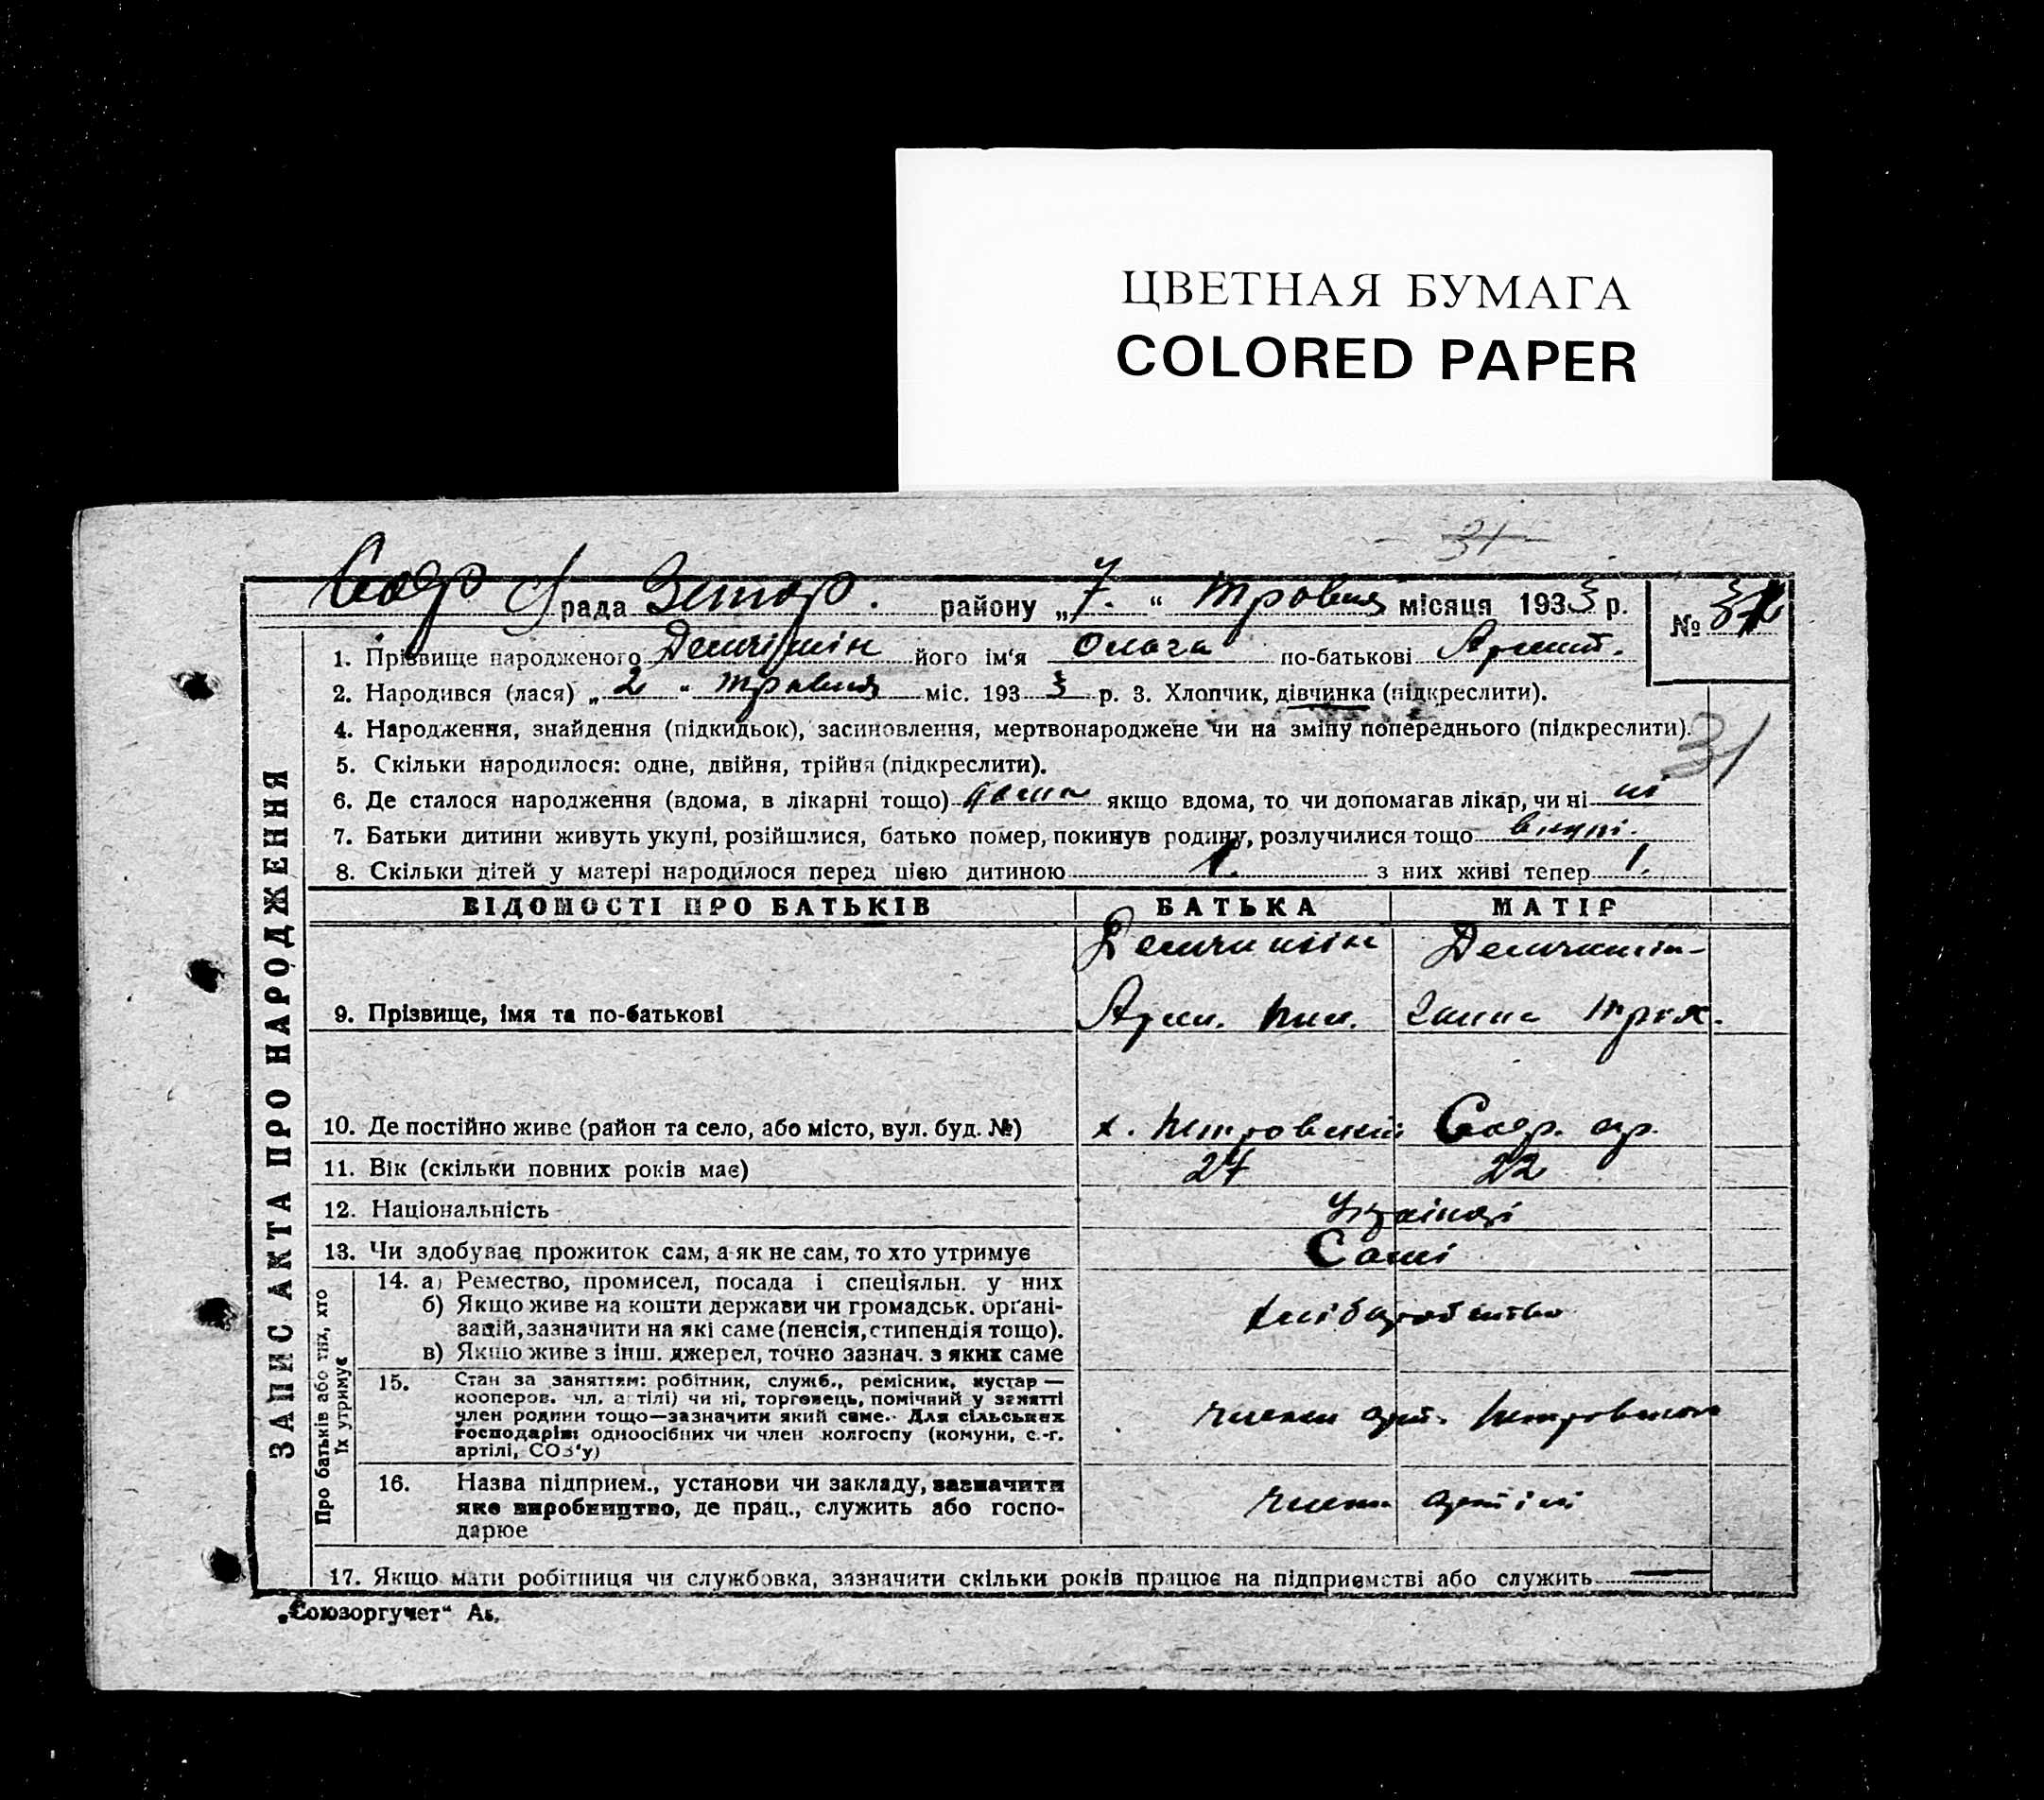 ЦВЕТНАЯ БУМАГА
COLORED PAPER
31
рада району „7.“ травня місяця 1933 р. № 31
1. Прізвище народженого його ім'я Ольга по-батькові
2. Народився (лася) „2“ травня міс. 1933 р. 3. Хлопчик, дівчинка (підкреслити).
4. Народження, знайдення (підкидьок), засиновлення, мертвонароджене чи на зміну попереднього (підкреслити).
31
5. Скільки народилося: одне, двійня, трійня (підкреслити).
6. Де сталося народження (вдома, в лікарні тощо) дома якщо вдома, то чи допомагав лікар, чи ні ні
7. Батьки дитини живуть укупі, розійшлися, батько помер, покинув родину, розлучилися тощо вкупі.
8. Скільки дітей у матері народилося перед цією дитиною 1. з них живі тепер 1.
ВІДОМОСТІ ПРО БАТЬКІВ БАТЬКА МАТІР
9. Прізвище, імя та по-батькові Ганна
10. Де постійно живе (район та село, або місто, вул. буд. №) х. Петровський
11. Вік (скільки повних років має) 27 22
12. Національність Українці
13. Чи здобуває прожиток сам, а як не сам, то хто утримує Самі
14. а) Ремество, промисел, посада і спеціяльн. у них
б) Якщо живе на кошти держави чи громадськ. органі-
зацій, зазначити на які саме (пенсія, стипендія тощо).
в) Якщо живе з інш. джерел, точно зазнач. з яких саме
хліборобство
15. Стан за заняттям: робітник, служб., ремісник, кустар —
кооперов. чл. артілі) чи ні, торговець, помічний у занятті
член родини тощо—зазначити який саме. Для сільських
господарів: одноосібних чи член колгоспу (комуни, с.-г.
артілі, СОЗ'у)
члени арт.
16. Назва підприєм., установи чи закладу, зазначити
яке виробництво, де прац., служить або госпо-
дарює
члени артілі
17. Якщо мати робітниця чи службовка, зазначити скільки років працює на підприємстві або служить —
„Союзоргучет“
ЗАПИС АКТА ПРО НАРОДЖЕННЯ
Про батьків або тих, хто
їх утримує